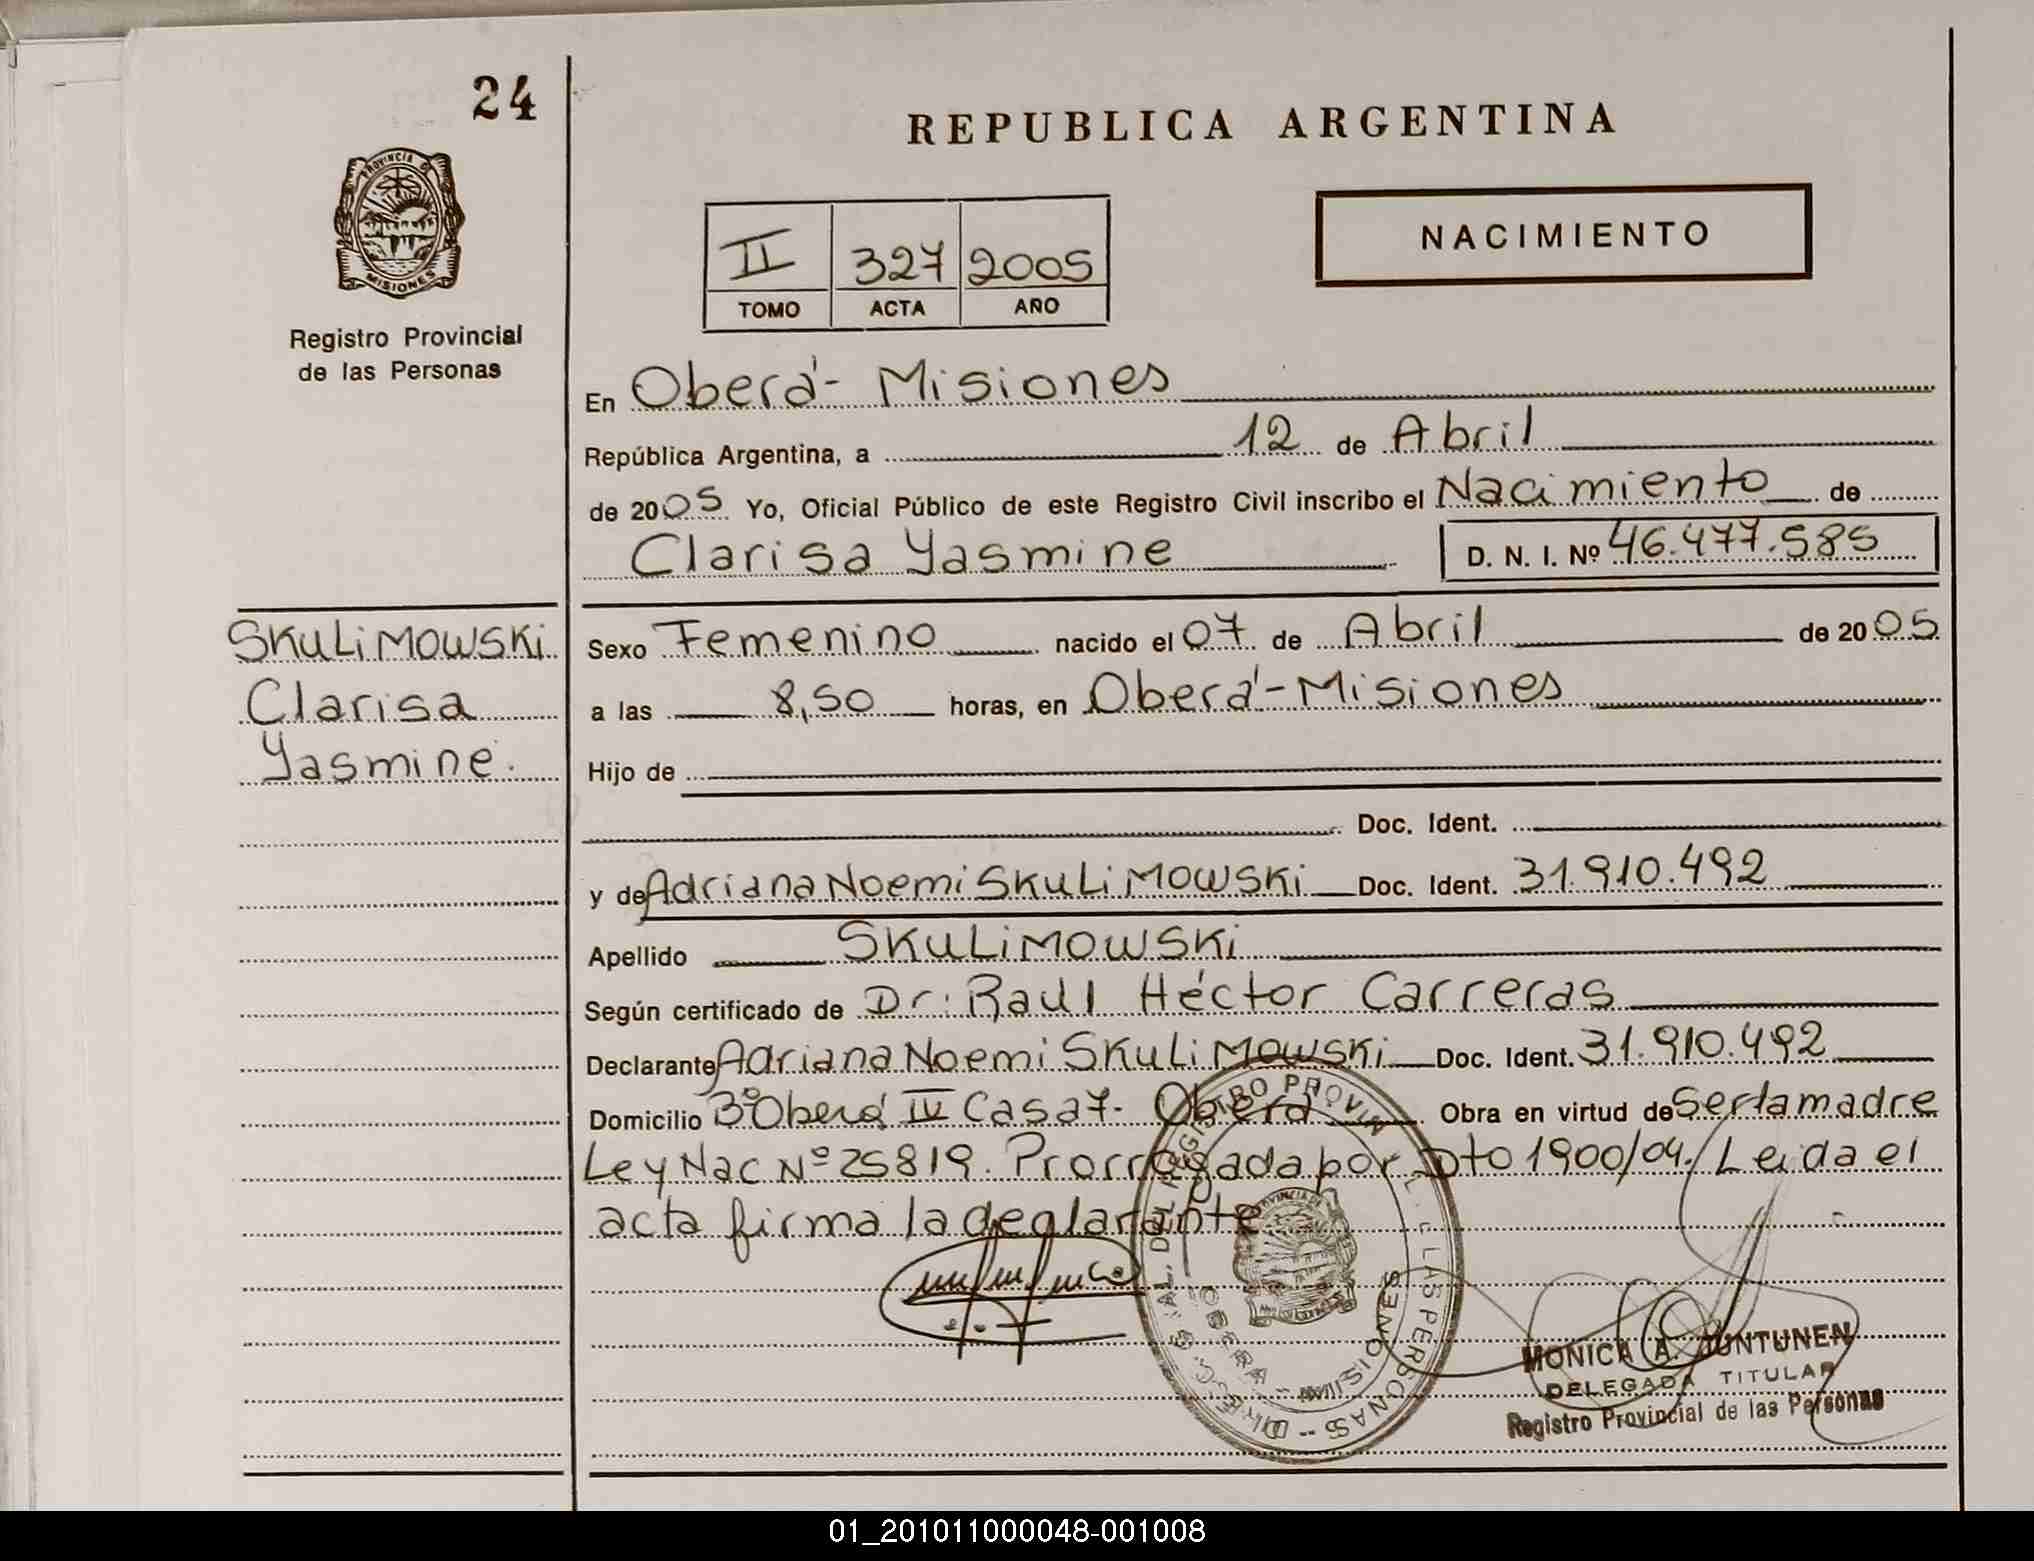 24
REPUBLICA ARGENTINA
PROVINCIA DE
MISIONES
NACIMIENTO
II 327 2005
TOMO ACTA AÑO
Registro Provincial
de las Personas
En Oberá - Misiones
República Argentina, a 12 de Abril
de 2005 Yo, Oficial Público de este Registro Civil inscribo el Nacimiento de
Clarisa Yasmine D. N. I. Nº 46.477.585
SKULIMOWSKI
Clarisa
Yasmine.
Sexo Femenino nacido el 07 de Abril de 2005
a las 8,50 horas, en Oberá - Misiones
Hijo de
Doc. Ident.
y de Adriana Noemi SKULIMOWSKI Doc. Ident. 31.910.492
Apellido SKULIMOWSKI
Según certificado de Dr. Raul Héctor Carreras
Declarante Adriana Noemi SKULIMOWSKI Doc. Ident. 31.910.492
Domicilio Bº Oberá IV Casa 7. Oberá Obra en virtud de Ser la madre
Ley Nac Nº 25819. Prorrogada por Dto 1900/04. Leida el
acta firma la declarante
MONICA A. JUNTUNEN
DELEGADA TITULAR
Registro Provincial de las Personas
01_201011000048-001008